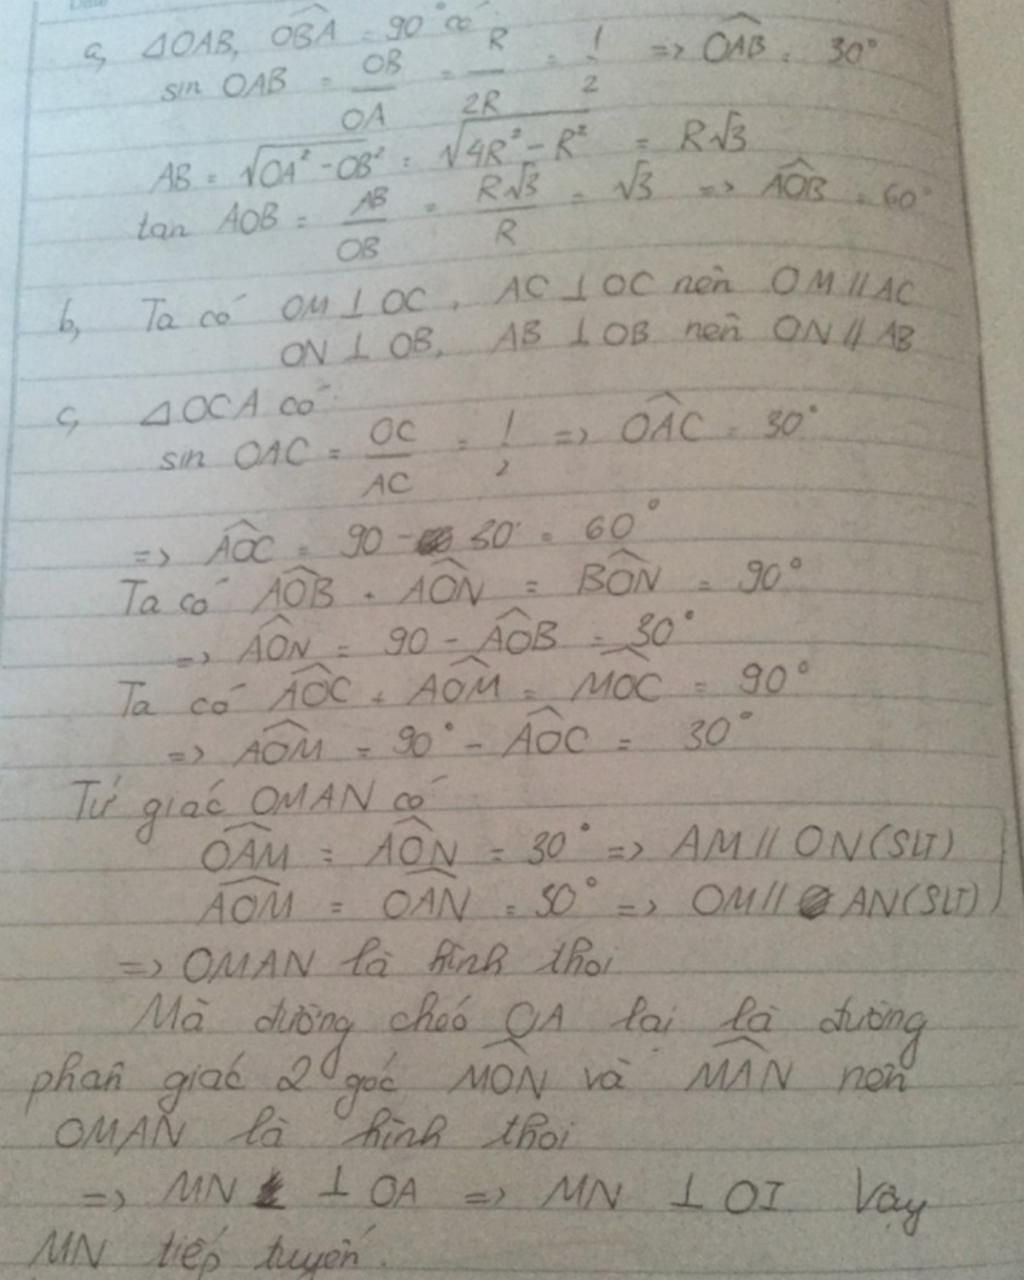 a, △OAB, \widehat{OBA} = 90° có
sin OAB = \frac{OB}{OA} = \frac{R}{2R} = \frac{1}{2} => \widehat{OAB} = 30°
AB = \sqrt{OA² - OB²} = \sqrt{4R² - R²} = R√3
tan AOB = \frac{AB}{OB} = \frac{R√3}{R} = √3 => \widehat{AOB} = 60°
b, Ta có OM ⊥ OC, AC ⊥ OC nên OM // AC
ON ⊥ OB, AB ⊥ OB nên ON // AB
c, △OCA có
sin OAC = \frac{OC}{AC} = \frac{1}{2} => \widehat{OAC} = 30°
=> \widehat{AOC} = 90 - 30° = 60°
Ta có \widehat{AOB} + \widehat{AON} = \widehat{BON} = 90°
=> \widehat{AON} = 90 - \widehat{AOB} = 30°
Ta có \widehat{AOC} + \widehat{AOM} = \widehat{MOC} = 90°
=> \widehat{AOM} = 90° - \widehat{AOC} = 30°
Tứ giác OMAN có
\widehat{OAM} = \widehat{AON} = 30° => AM // ON (SLT)
\widehat{AOM} = \widehat{OAN} = 30° => OM // AN (SLT)
=> OMAN là hình thoi
Mà đường chéo OA lại là đường
phân giác 2 góc \widehat{MON} và \widehat{MAN} nên
OMAN là hình thoi
=> MN ⊥ OA => MN ⊥ OI Vậy
MN tiếp tuyến.